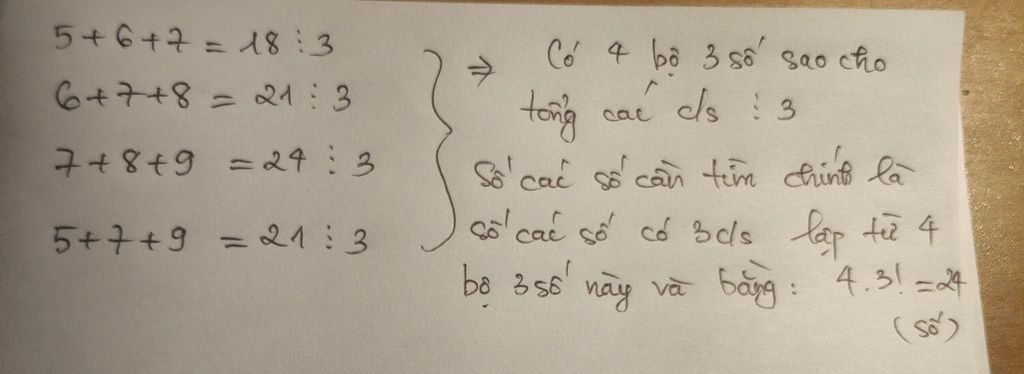 5 + 6 + 7 = 18 ⋮ 3
6 + 7 + 8 = 21 ⋮ 3
7 + 8 + 9 = 24 ⋮ 3
5 + 7 + 9 = 21 ⋮ 3
⇒ Có 4 bộ 3 số sao cho
tổng các c/s ⋮ 3
Số các số cần tìm chính là
số các số có 3 c/s lập từ 4
bộ 3 số này và bằng: 4.3! = 24
(số)